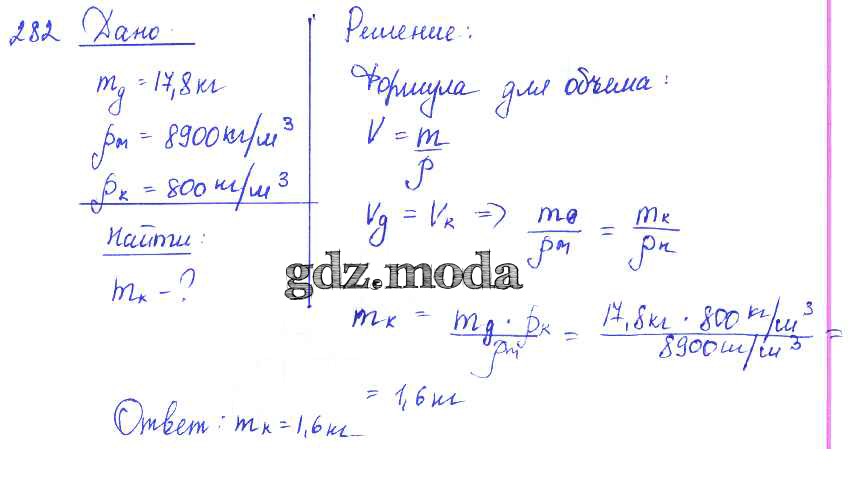 282 Дано:
m_д = 17,8 кг
ρ_м = 8900 кг/м³
ρ_к = 800 кг/м³
Найти:
m_к - ?
Решение:
Формула для объема:
V = m/ρ
V_д = V_к => m_д/ρ_м = m_к/ρ_к
gdz.moda
m_к = m_д · ρ_к/ρ_м = 17,8кг · 800 кг/м³/8900 кг/м³ =
= 1,6 кг
Ответ: m_к = 1,6 кг